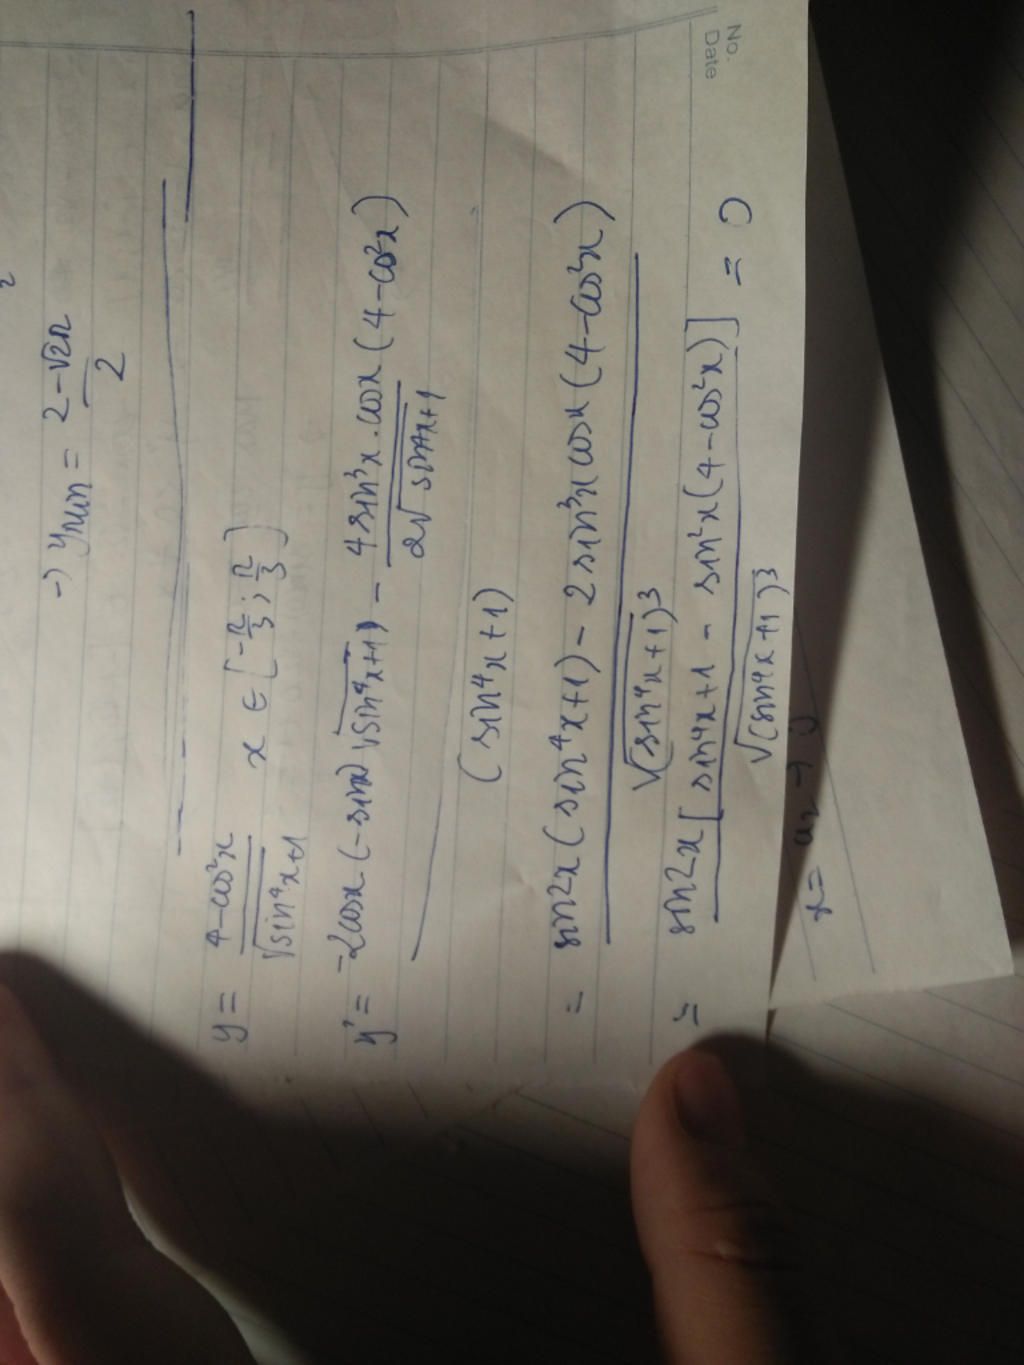 No.
Date
2
→ ymin = (2 - √2π)/2
y = (4 - cos²x)/√(sin⁴x+1) x ∈ [-π/3 ; π/3]
y' = (-2cosx.(-sinx)√(sin⁴x+1) - (4sin³x.cosx(4 - cos²x))/(2√(sin⁴x+1)))/(sin⁴x+1)
= (sin2x(sin⁴x+1) - 2sin³x cosx(4 - cos²x))/√(sin⁴x+1)³
= (sin2x[sin⁴x+1 - sin²x(4 - cos²x)])/√(sin⁴x+1)³ = 0
x =